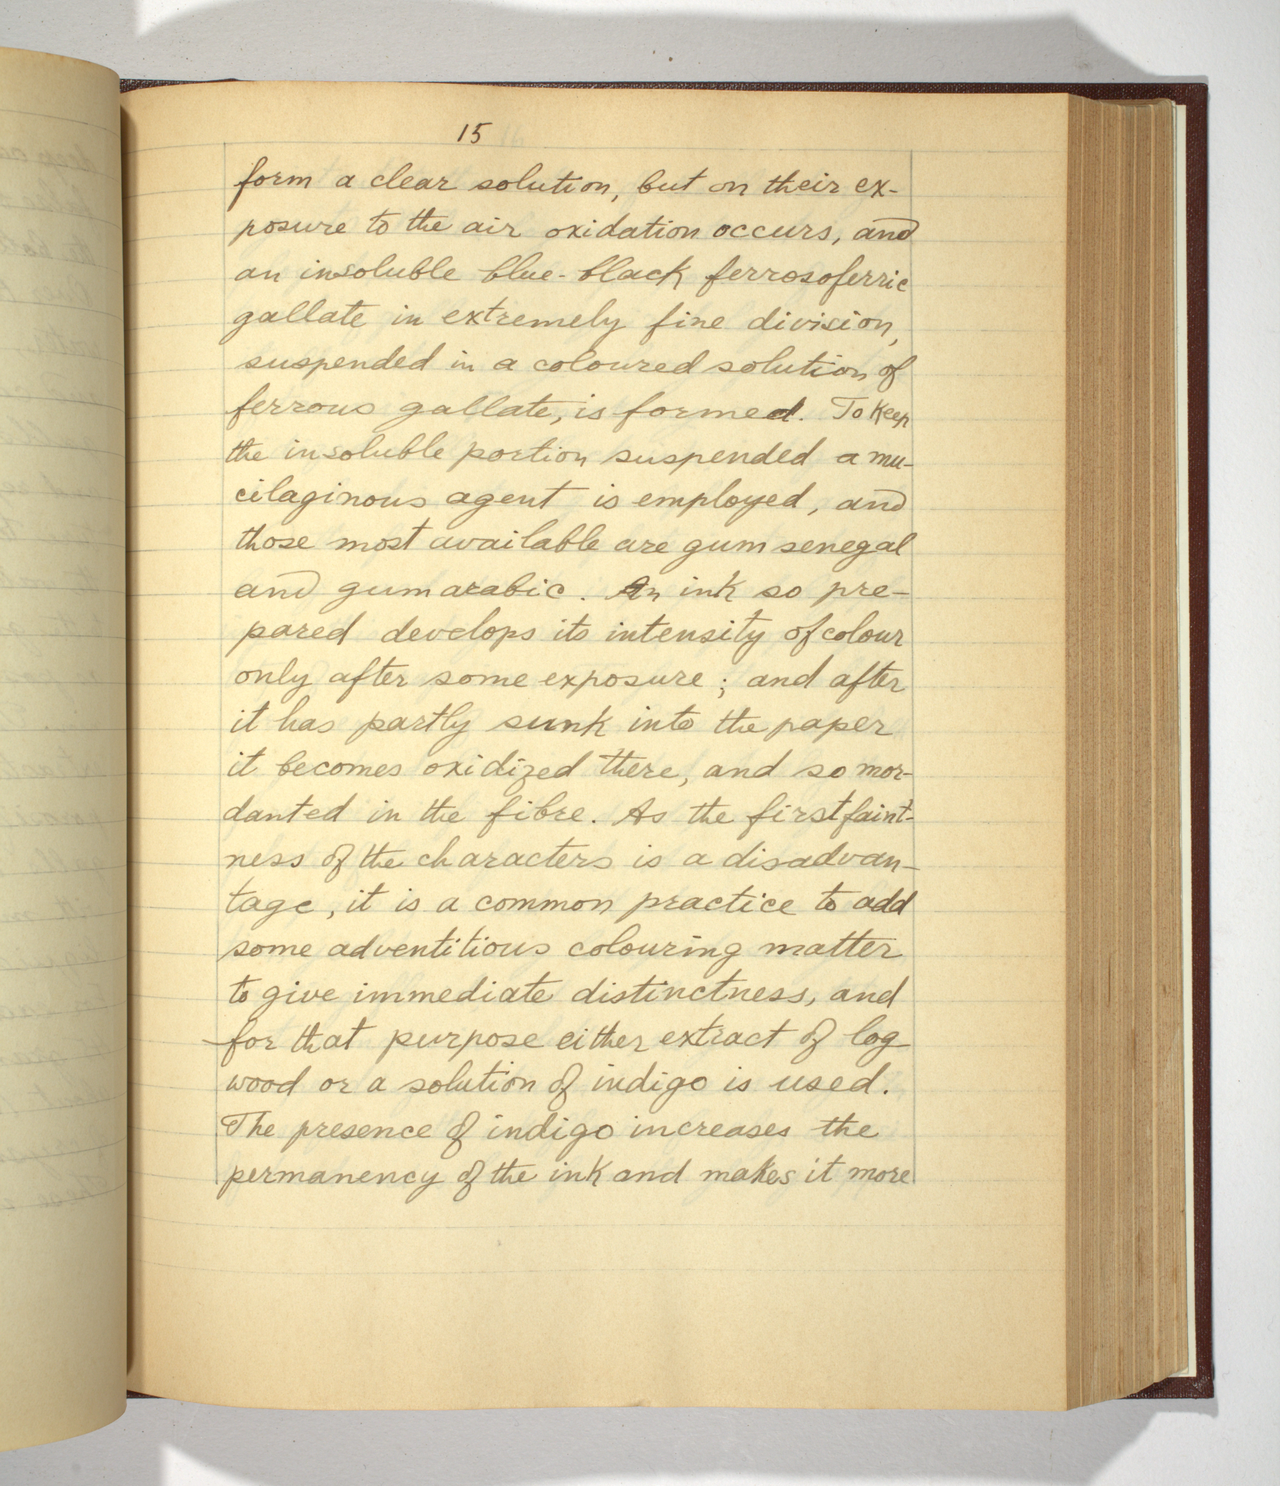 15
form a clear solution, but on their ex-
posure to the air oxidation occurs, and
an insoluble blue-black ferrosoferric
gallate in extremely fine division,
suspended in a coloured solution of
ferrous gallate, is formed. To keep
the insoluble portion suspended a mu-
cilaginous agent is employed, and
those most available are gum senegal
and gum arabic. An ink so pre-
pared develops its intensity of colour
only after some exposure; and after
it has partly sunk into the paper
it becomes oxidized there, and so mor-
danted in the fibre. As the first faint-
ness of the characters is a disadvan-
tage, it is a common practice to add
some adventitious colouring matter
to give immediate distinctness, and
for that purpose either extract of log-
wood or a solution of indigo is used.
The presence of indigo increases the
permanency of the ink and makes it more